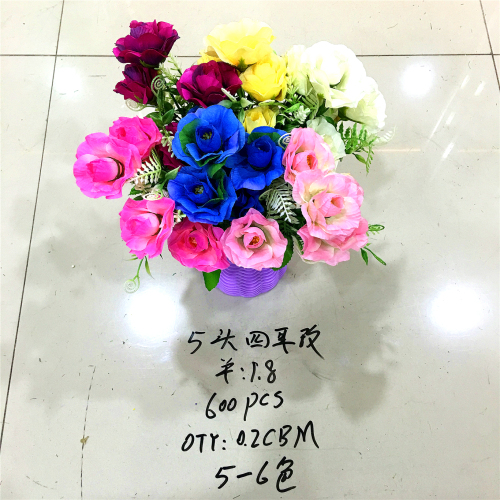 5头四耳玫
羊:1.8
600pcs
OTY: 0.2CBM
5-6色